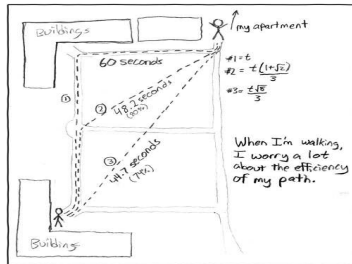 Buildings
my apartment
60 seconds
#1=t
#2= t(1+√2)/3
#3= t√5/3
①
②
48.2 seconds
(80%)
③
44.7 seconds
(74%)
When I'm walking,
I worry a lot
about the efficiency
of my path.
Buildings